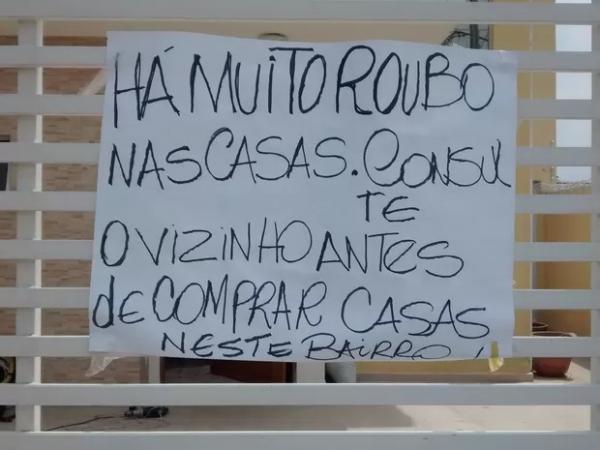 HÁ MUITO ROUBO
NAS CASAS. CONSUL
TE
O VIZINHO ANTES
de COMPRAR CASAS
NESTE BAIRRO!